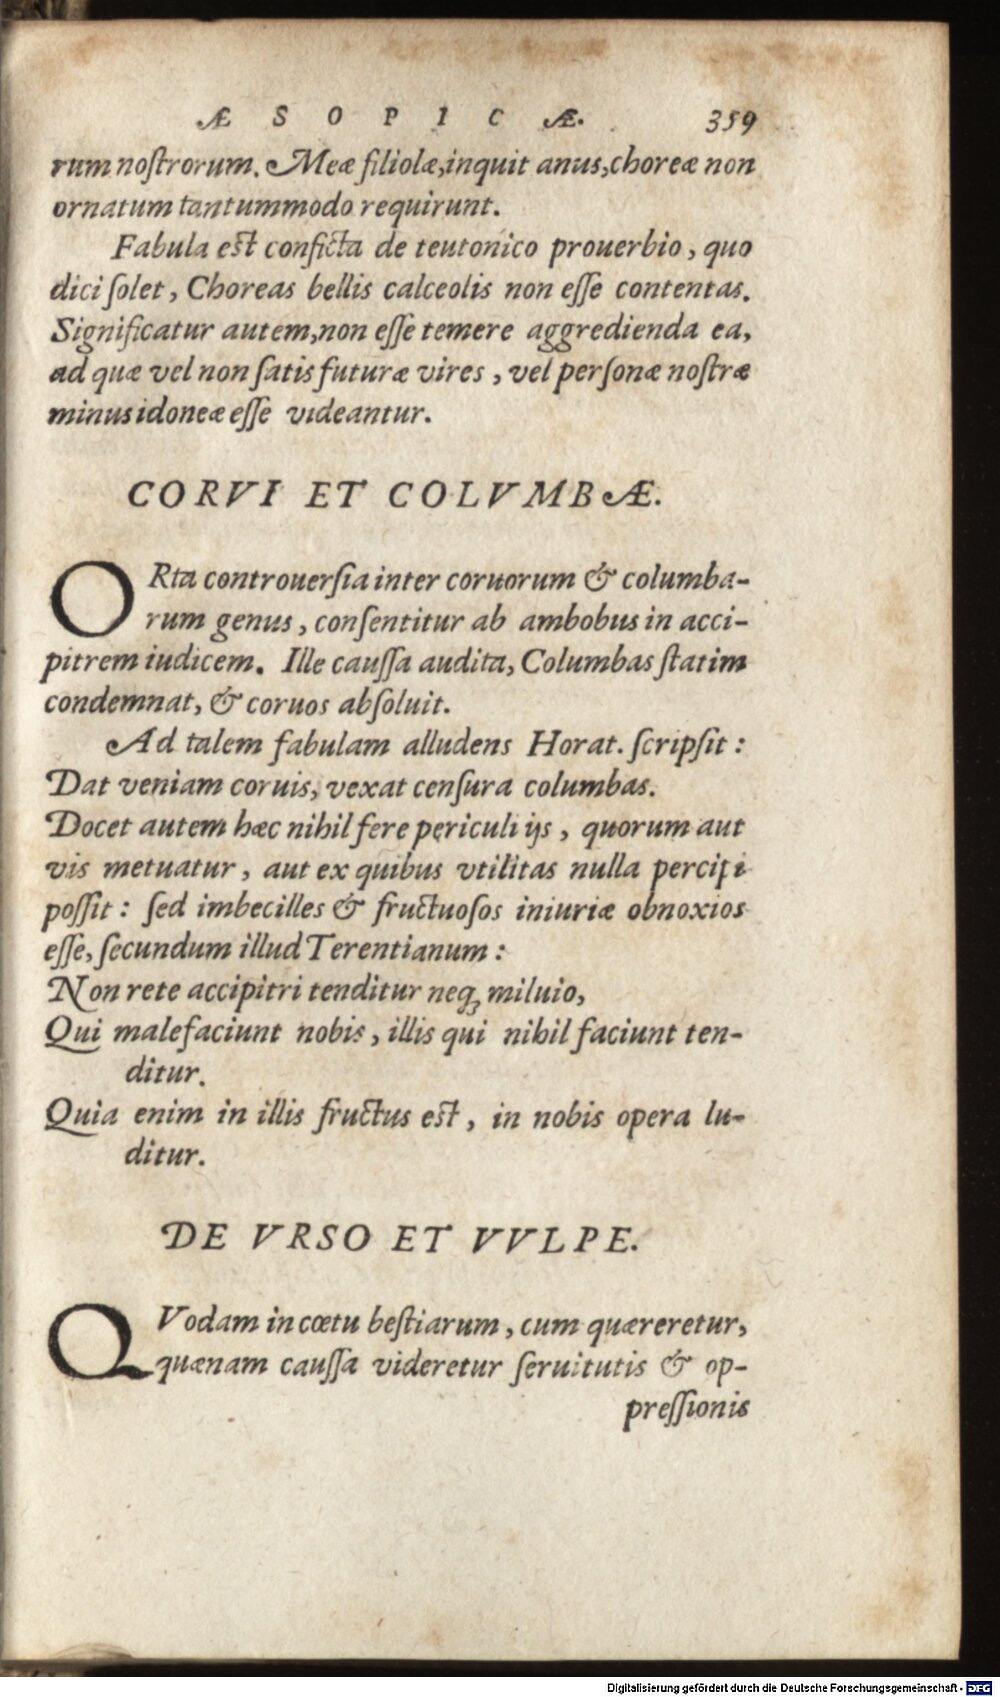 ÆSOPICÆ. 359
rum noſtrorum. Meæ filiolæ, inquit anus, choreæ non
ornatum tantummodo requirunt.
Fabula est conficta de teutonico prouerbio, quo
dici ſolet, Choreas bellis calceolis non eſſe contentas.
Significatur autem, non eſſe temere aggredienda ea,
ad quæ vel non ſatis futuræ vires, vel perſonæ noſtræ
minus idoneæ eſſe videantur.
CORVI ET COLVMBÆ.
ORta controuerſia inter coruorum & columba-
rum genus, conſentitur ab ambobus in acci-
pitrem iudicem. Ille cauſſa audita, Columbas ſtatim
condemnat, & coruos abſoluit.
Ad talem fabulam alludens Horat. ſcripſit:
Dat veniam coruis, vexat cenſura columbas.
Docet autem hæc nihil fere periculi ijs, quorum aut
vis metuatur, aut ex quibus vtilitas nulla percipi
poſſit: ſed imbecilles & fructuoſos iniuriæ obnoxios
eſſe, ſecundum illud Terentianum:
Non rete accipitri tenditur neqꝫ miluio,
Qui malefaciunt nobis, illis qui nihil faciunt ten-
ditur.
Quia enim in illis fructus est, in nobis opera lu-
ditur.
DE VRSO ET VVLPE.
QVodam in cœtu beſtiarum, cum quæreretur,
quænam cauſſa videretur ſeruitutis & op-
preſſionis
Digitalisierung gefördert durch die Deutsche Forschungsgemeinschaft - DFG